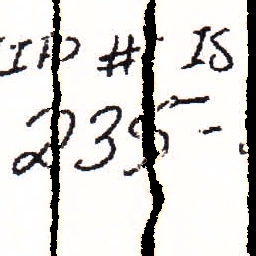 ID # IS
235-